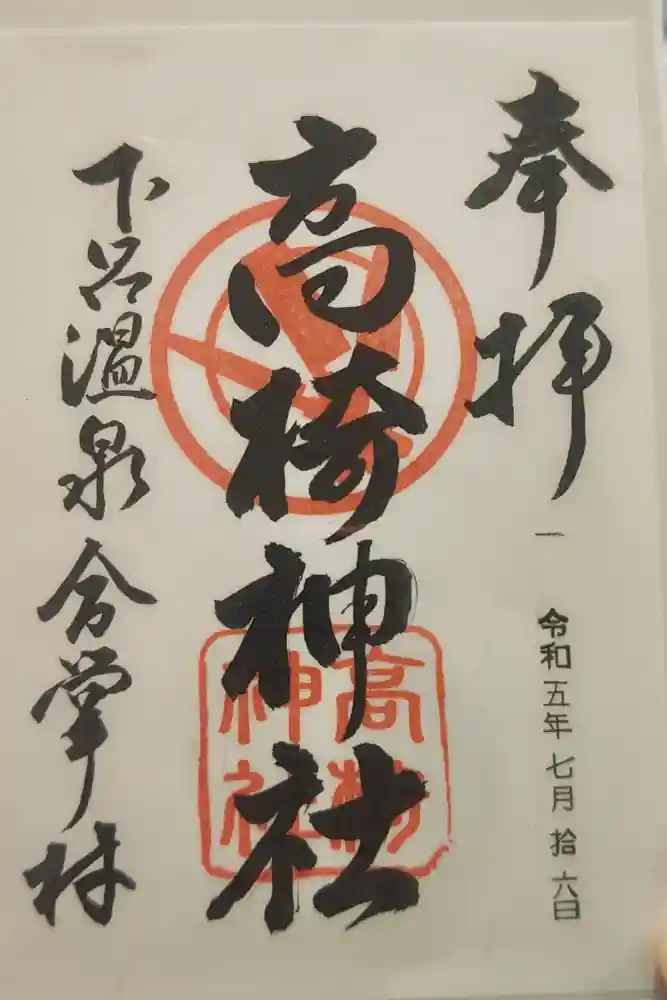 奉拝
令和五年七月拾六日
高椅神社
高椅
神社
下呂温泉合掌村